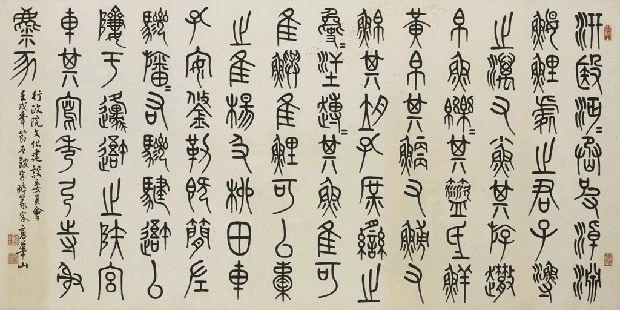 汧殹沔=烝皮淖淵
鰋鯉處之君子漁
之澫又小魚其斿趣=
帛魚皪=其盜氐鮮
黃帛其鯾又又
其胡孔庶臠之
趠=其魚隹可
隹鱮隹鯉可以橐
之隹楊及柳田車
孔安鋚勒既簡左
驂旛=右驂騝避以
隮于邍避止陝宮
車其寫秀弓寺射
麋豕
行政院文化建設委員會
壬戌年 高華山